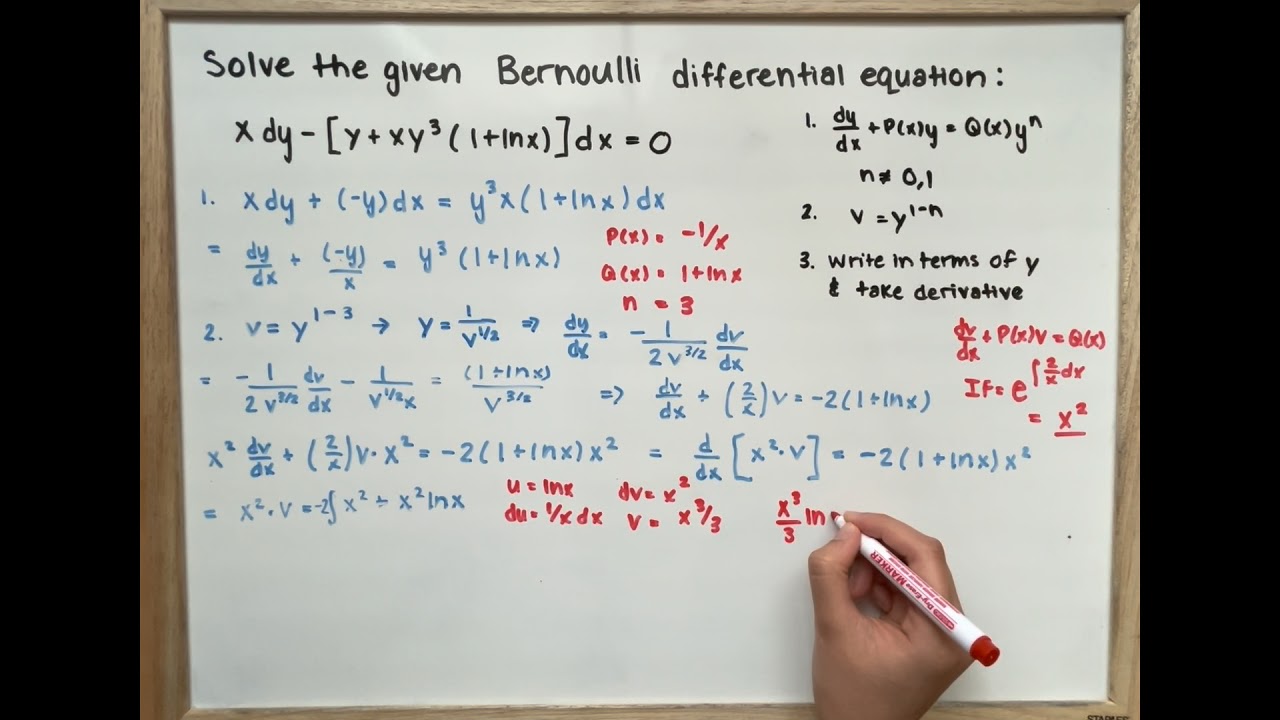 Solve the given Bernoulli differential equation:
x dy - [y + xy³ (1+lnx)] dx = 0
1. dy/dx + P(x)y = Q(x)yⁿ
n ≠ 0,1
2. v = y¹⁻ⁿ
3. write in terms of y
& take derivative
1. x dy + (-y) dx = y³x(1+lnx) dx
= dy/dx + (-y)/x = y³ (1+lnx)
P(x) = -1/x
Q(x) = 1+lnx
n = 3
2. v = y^(1-3) → y = 1/v^(1/2) ⇒ dy/dx = -1/(2v^(3/2)) dv/dx
= -1/(2v^(3/2)) dv/dx - 1/(v^(1/2)x) = (1+lnx)/v^(3/2) ⇒ dv/dx + (2/x)v = -2(1+lnx)
dv/dx + P(x)v = Q(x)
IF = e^(∫2/x dx)
= x²
x² dv/dx + (2/x)v·x² = -2(1+lnx)x² = d/dx [x²·v] = -2(1+lnx)x²
= x²·v = -2∫x² + x² lnx
u = lnx dv = x²
du = 1/x dx v = x³/3
x³/3 ln
MARKER
STAPLES